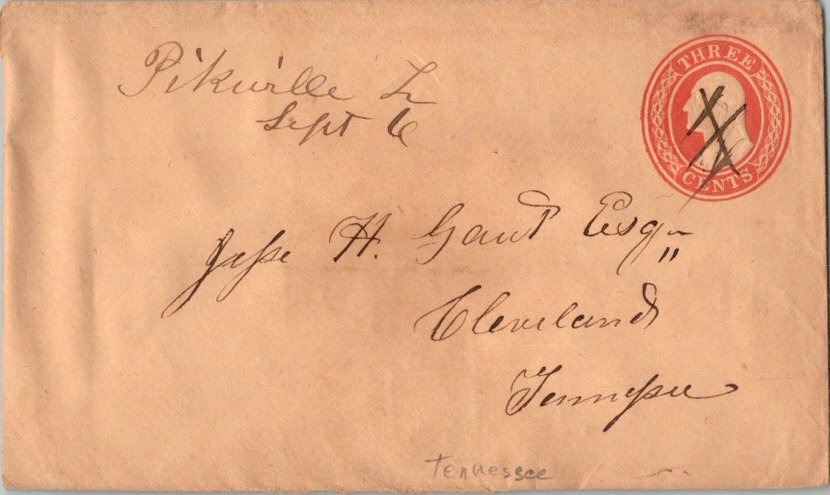 Pikville Tn
Sept 6
THREE
CENTS
Jesse H. Gaut Esq
Cleveland
Tennessee
Tennessee